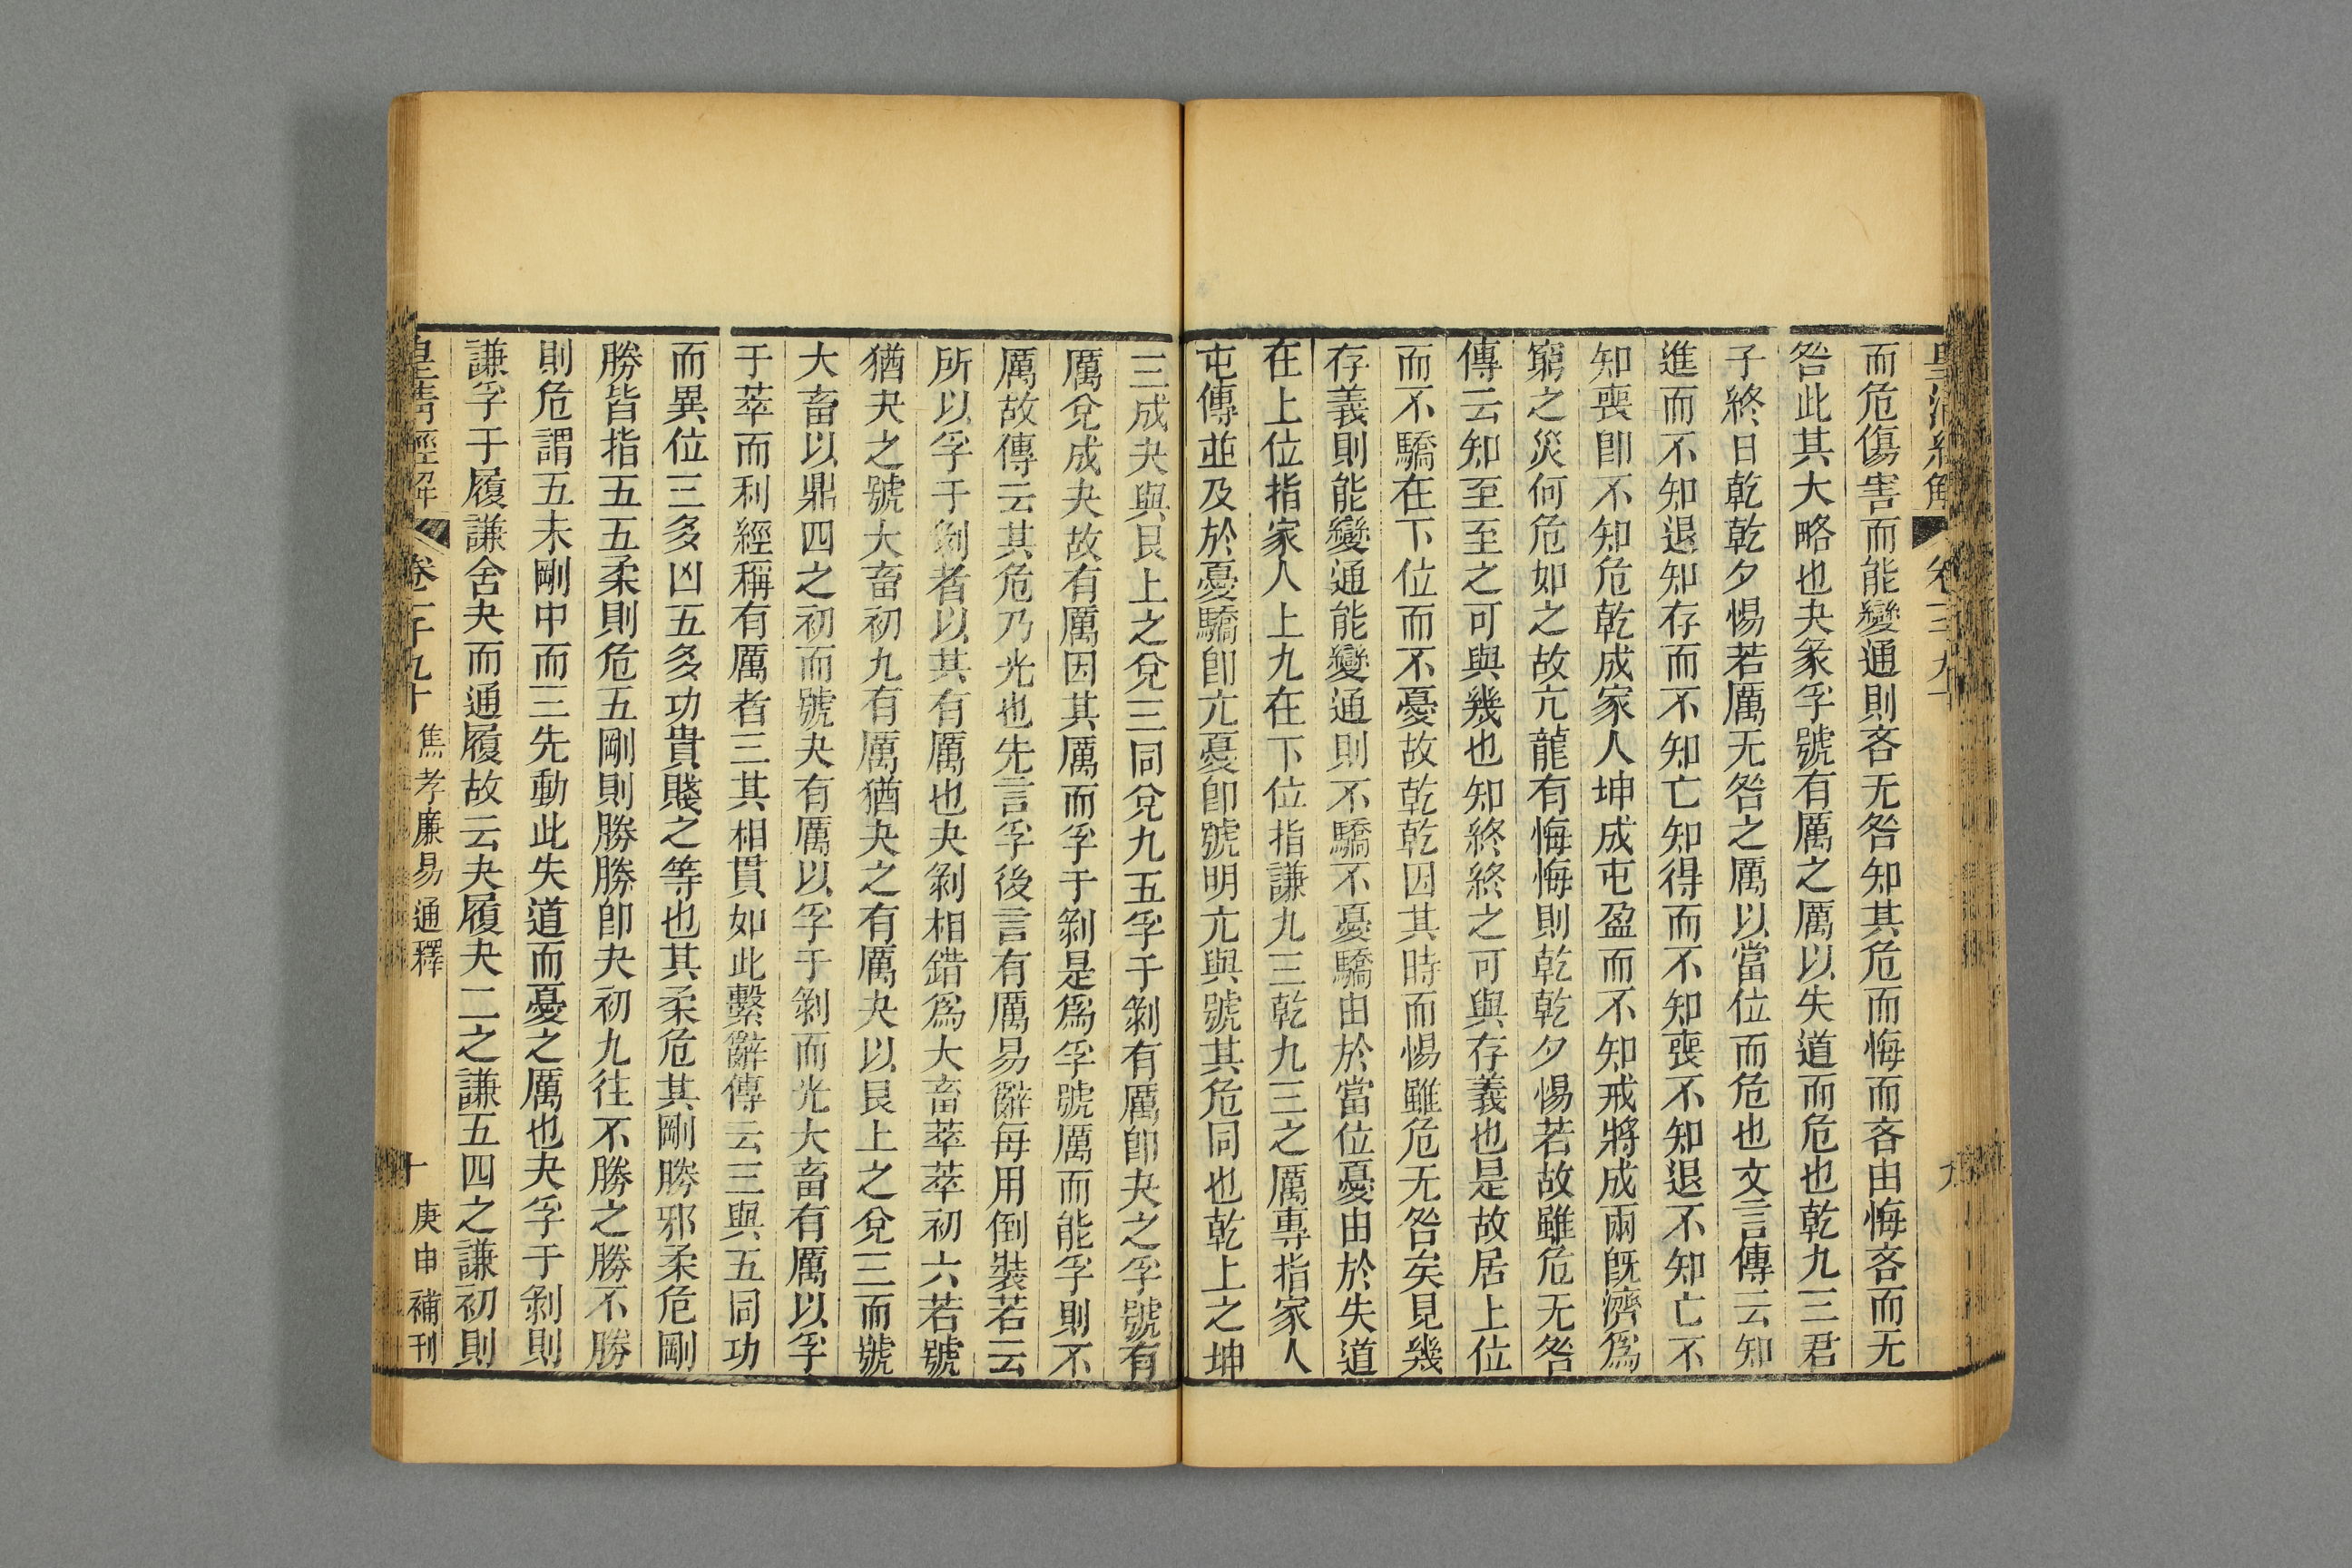 皇清經解
九
而危傷害而能變通則吝无咎知其危而悔而吝由悔吝而无
咎此其大略也夬彖孚號有厲之厲以失道而危也乾九三君
子終日乾乾夕惕若厲无咎之厲以當位而危也文言傳云知
進而不知退知存而不知亡知得而不知喪不知退不知亡不
知喪卽不知危乾成家人坤成屯盈而不知戒將成兩旣濟爲
窮之災何危如之故亢龍有悔悔則乾乾夕惕若故雖危无咎
傳云知至至之可與幾也知終終之可與存義也是故居上位
而不驕在下位而不憂故乾乾因其時而惕雖危无咎矣見幾
存義則能變通能變通則不驕不憂驕由於當位憂由於失道
在上位指家人上九在下位指謙九三乾九三之厲專指家人
屯傳並及於憂驕卽亢憂卽號明亢與號其危同也乾上之坤
三成夬與艮上之兌三同兌九五孚于剝有厲卽夬之孚號有
厲兌成夬故有厲因其厲而孚于剝是爲孚號厲而能孚則不
厲故傳云其危乃光也先言孚後言有厲易辭每用倒裝若云
所以孚于剝者以其有厲也夬剝相錯爲大畜萃萃初六若號
猶夬之號大畜初九有厲猶夬之有厲夬以艮上之兌三而號
大畜以鼎四之初而號夬有厲以孚于剝而光大畜有厲以孚
于萃而利經稱有厲者三其相貫如此繫辭傳云三與五同功
而異位三多凶五多功貴賤之等也其柔危其剛勝邪柔危剛
勝皆指五五柔則危五剛則勝勝卽夬初九往不勝之勝不勝
則危謂五未剛中而三先動此失道而憂之厲也夬孚于剝則
謙孚于履謙舍夬而通履故云夬履夬二之謙五四之謙初則
皇清經解
卷一千九十
焦孝廉易通釋
十
庚申補刊